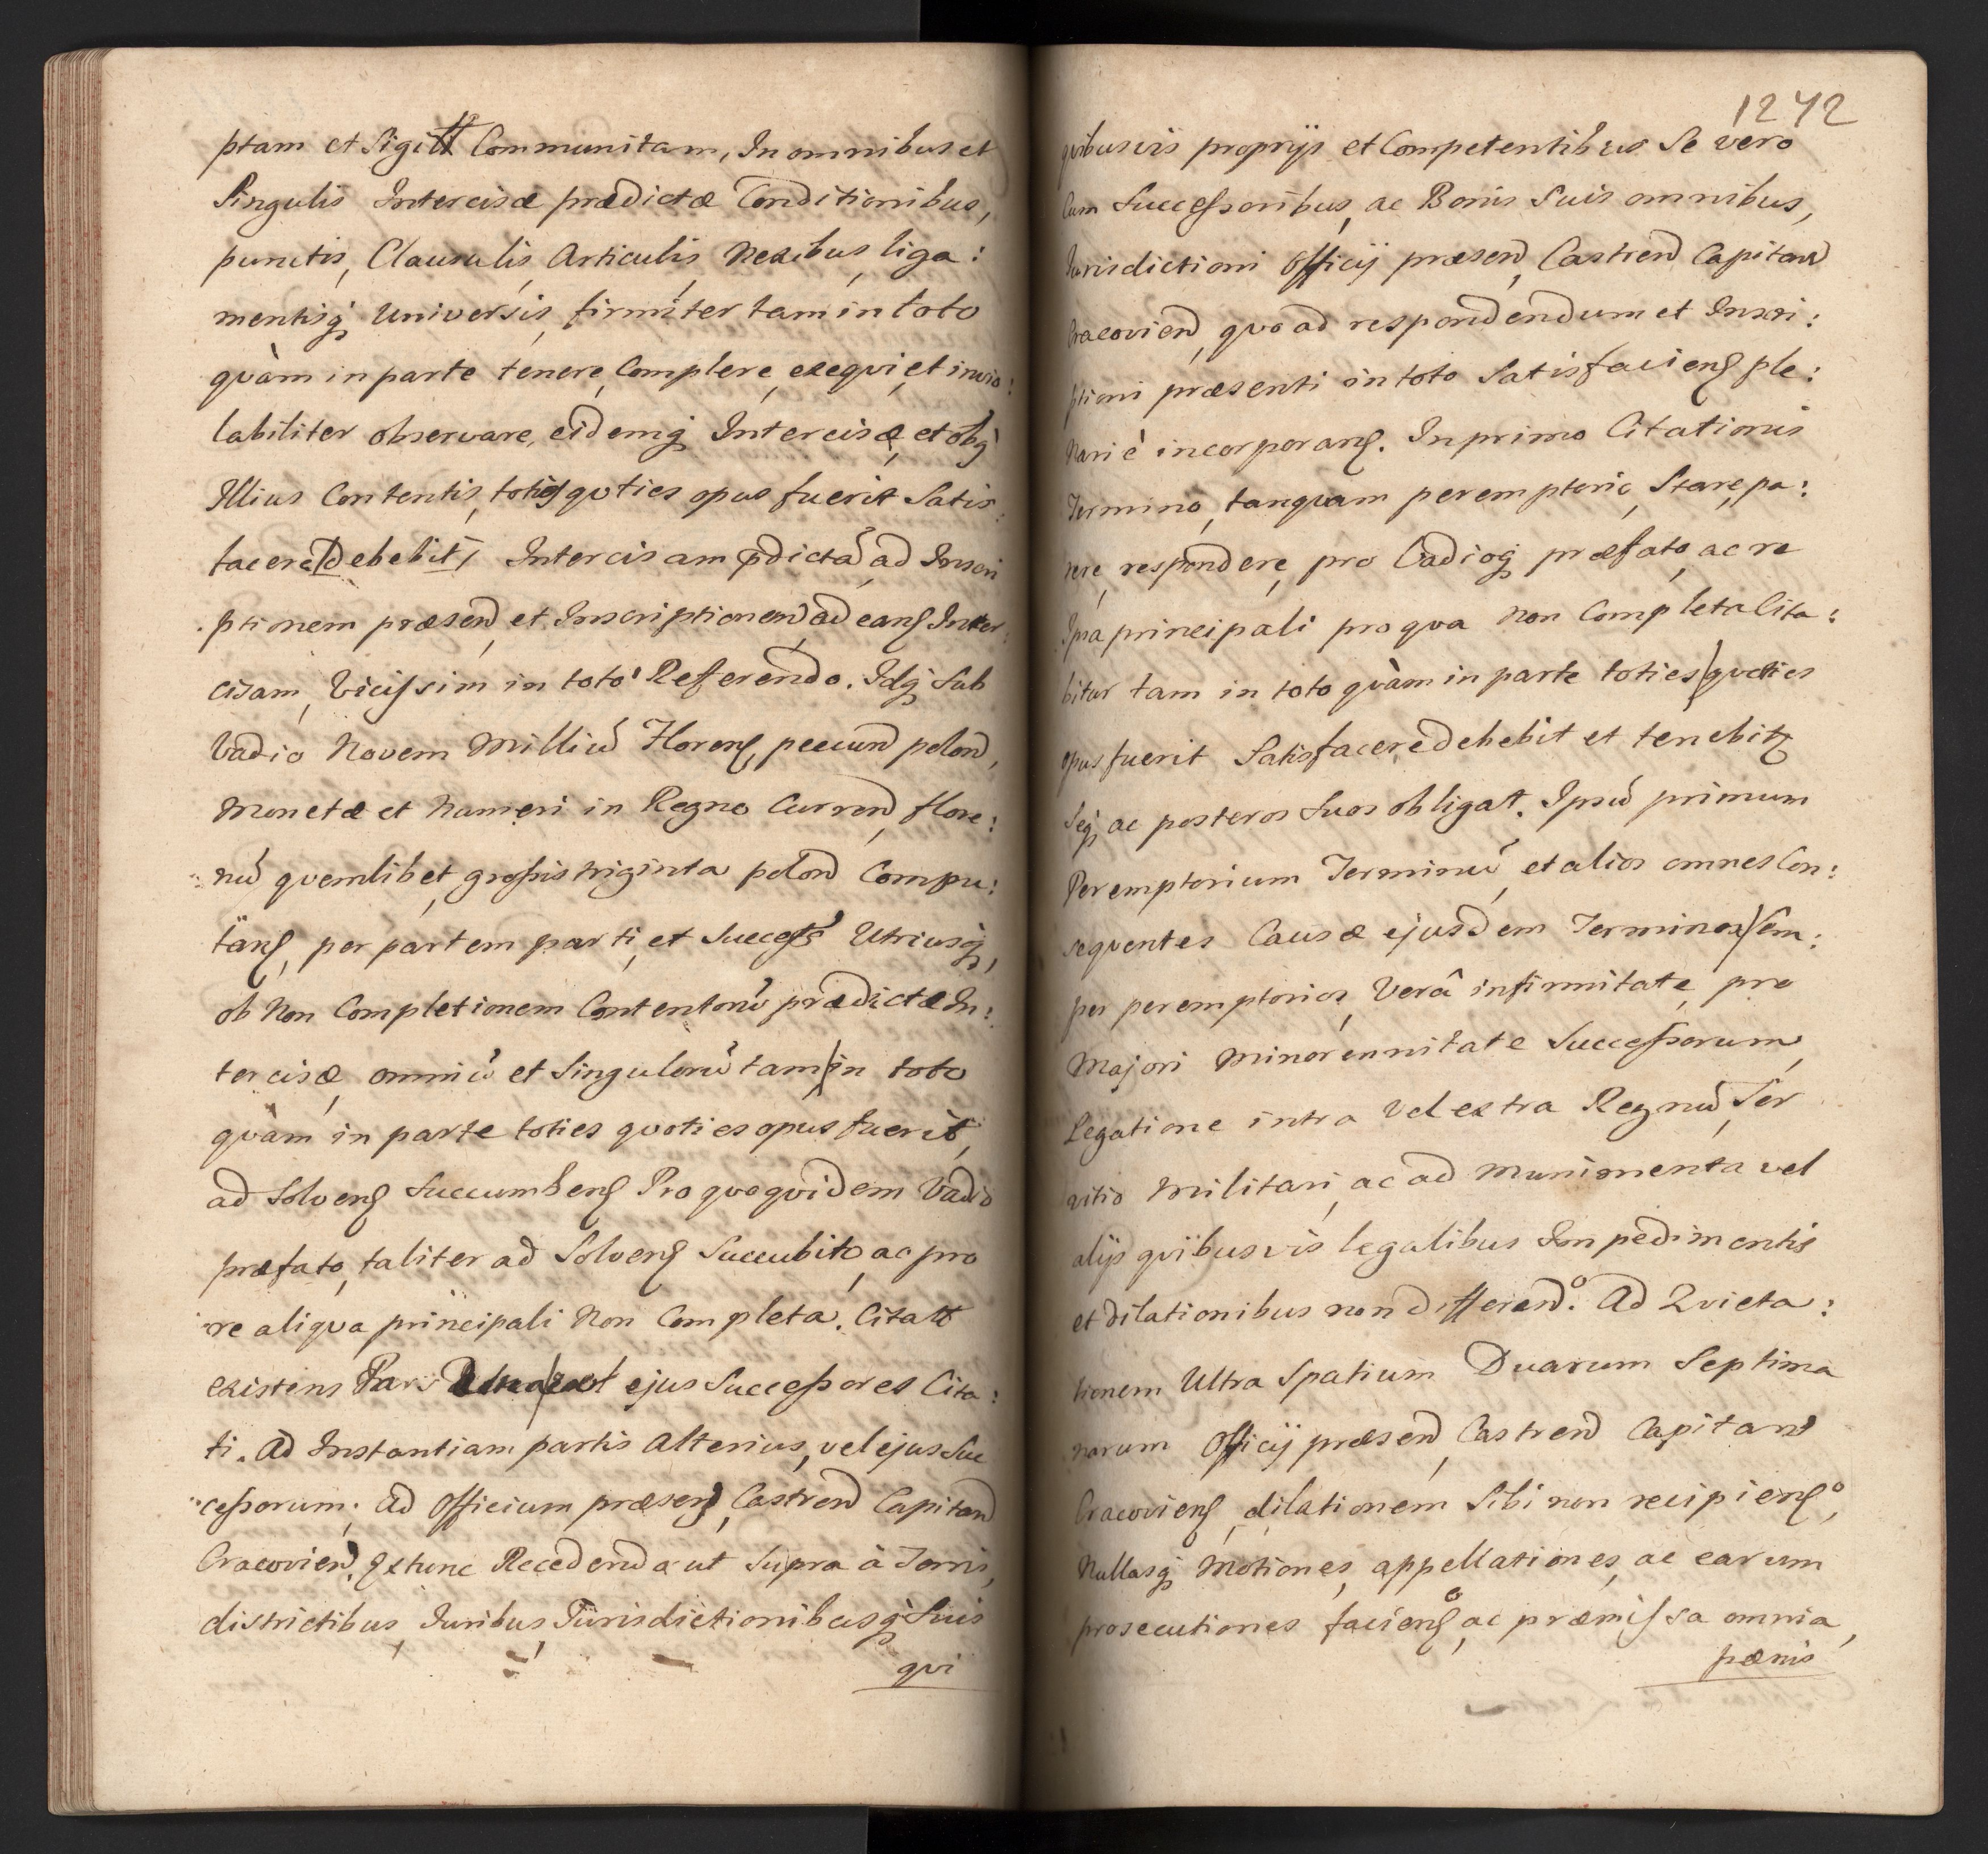 ptam et Sigill Communitam, In omnibus et
Singulis Intercisæ prædictæ Conditionibus,
punctis, Clausulis, Articulis, Nexibus, liga:
mentisq, Universis, firmiter tam in toto
qvàm in parte tenere, Complere, exeqvi, et invio:
labiliter observare, eidemq Intercisæ, et obq
Illius Contentis, toties qvoties opus fuerit Satis
facere Debebit, Intercisam pdictã, ad Inscri
ptionem præsend, et Inscriptionem ad eand Inter:
cisam, Vicissim in toto Referendo. Idq Sub
Vadio Novem Milliũ Florens, pecund polond,
Monetæ et Numeri in Regno Currend, flore:
nũ qvemlibet, grossis triginta polond Compu:
tans, per partem parti, et Success Utriusq,
ob Non Completionem Contentorũ prædictæ In:
tercisæ, omniũ et Singulorũ tam in toto
qvàm in parte toties qvoties opus fuerit,
ad Solvend Succumbend Pro qvo qvidem Vadio
præfato, taliter ad Solvend Succubito, ac pro
re aliqva principali Non Completa. Citatt
existens Pars vel ejus Successores Cita:
ti. Ad Instantiam partis Alterius, vel ejus Suc
cessorum. Ad Officium præsens, Castrend Capitand
Cracoviend. Extunc Recedendo ut Supra à Terris,
districtibus, Iuribus, Iurisdictionibusq Suis
qvi
1272
qvibusvis proprijs et Competentibus Se vero
Cum Successoribus, ac Bonis Suis omnibus,
Iurisdictioni Officij præsend, Castrend Capitand
Cracoviend, qvoad respondendum et Inscri:
ptioni præsenti in toto Satisfaciend ple:
nariè incorporand. In primo Citationis
Termino, tanqvam peremptorio, Stare, pa:
rere, respondere, pro Vadioq præfato, ac re
Ipsa principali pro qva Non Completa Cita:
bitur tam in toto qvàm in parte toties qvoties
opus fuerit Satisfacere debebit et tenebitr
Seq ac posteros Suos obligat. Ipsũ primum
Peremptorium Terminũ, et alios omnes Con:
seqventes Causæ ejusdem Terminos Sem:
per peremptorios, Verâ infirmitate, pro
Majori Minorennitate Successorum
Legatione intra Vel extra Regnũ, Ser
vitio Militari, ac ad Munimenta vel
alijs qvibusvis legalibus Impedimentis
et dilationibus non differendo. Ad Qvieta:
tionem Ultra Spatium Duarum Septima
narum Officij præsend, Castrend Capitand
Cracoviens, dilationem Sibi non recipiendo,
Nullasq Motiones, appellationes, ac earum
prosecutiones faciendo, ac præmissa omnia,
pænis